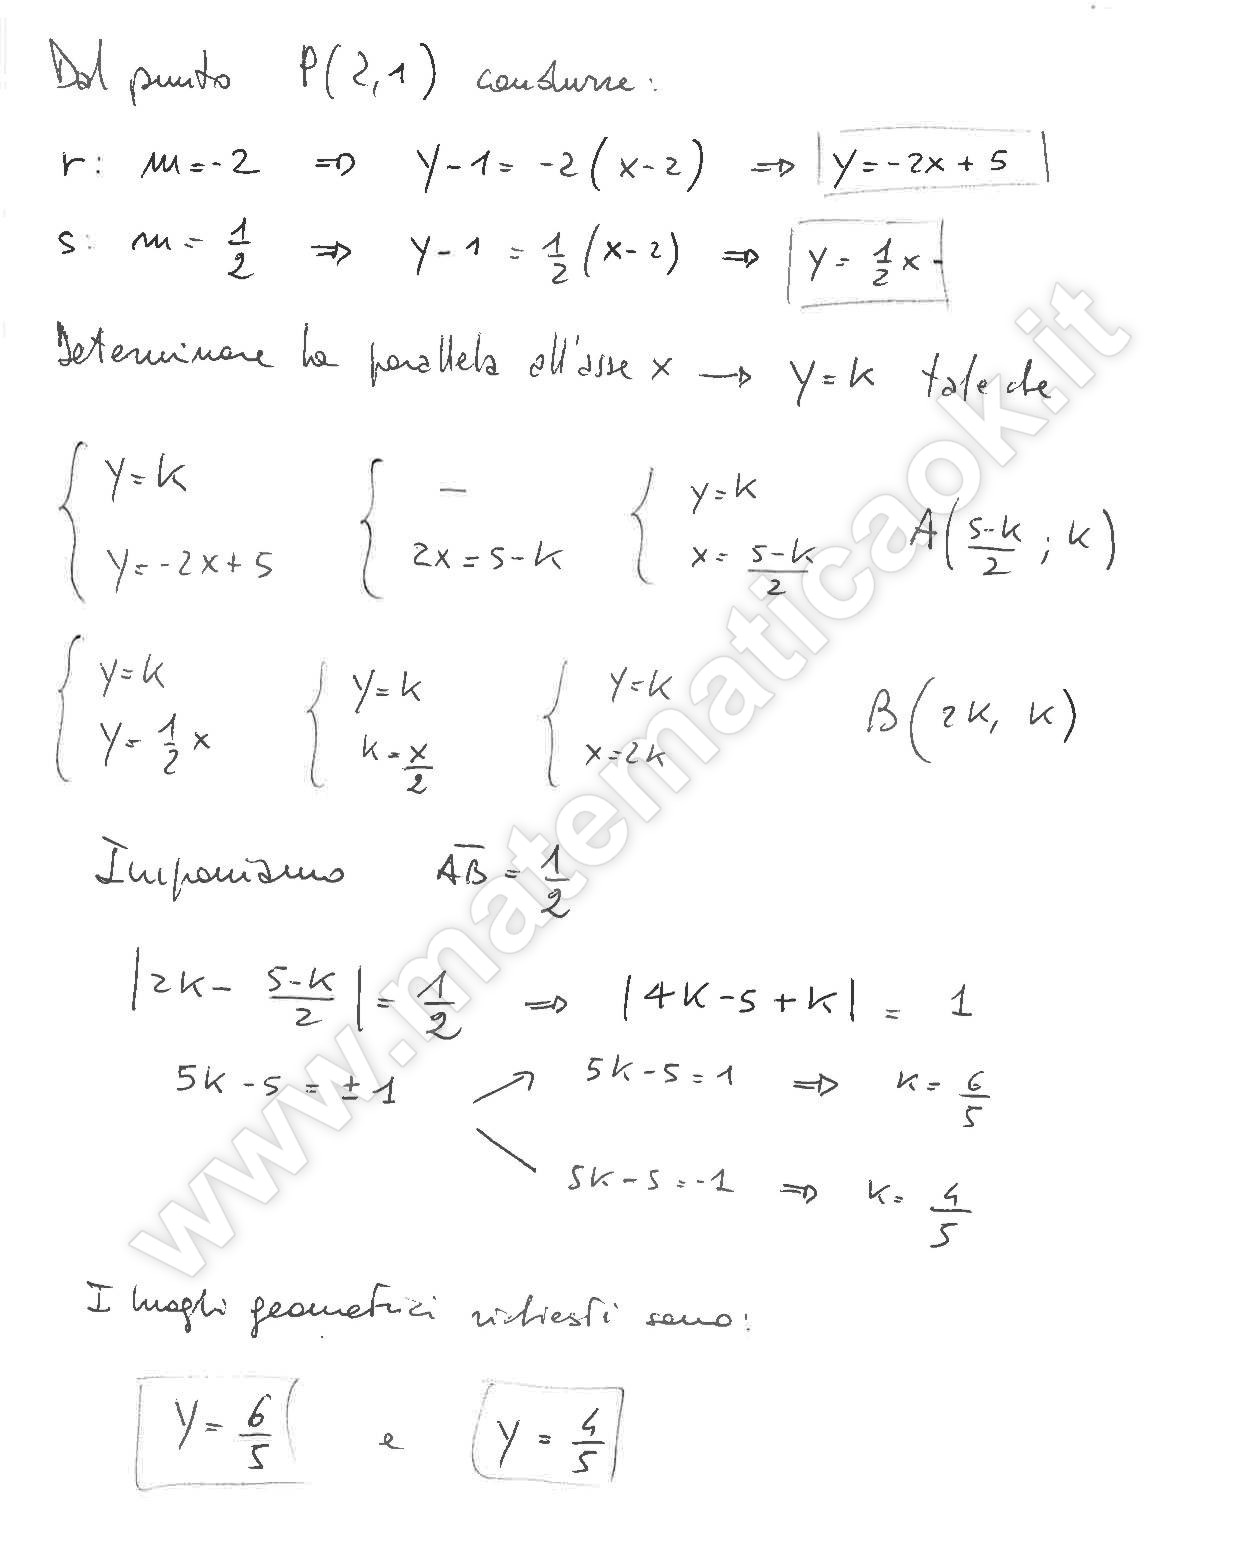 Dal punto P(2,1) condurre:
r: m=-2 ⇒ y-1=-2(x-2) ⇒ y=-2x+5
s: m=1/2 ⇒ y-1=1/2(x-2) ⇒ y=1/2x
Determinare la parallela all'asse x → y=k tale che
{ y=k { — { y=k A(5-k/2; k)
y=-2x+5 2x=5-k x=5-k/2
{ y=k { y=k { y=k B(2k, k)
y=1/2x k=x/2 x=2k
Imponiamo AB=1/2
|2k-5-k/2|=1/2 ⇒ |4k-5+k|=1
5k-5=±1 5k-5=1 ⇒ k=6/5
5k-5=-1 ⇒ k=4/5
I luoghi geometrici richiesti sono:
y=6/5 e y=4/5
www.matematicaok.it